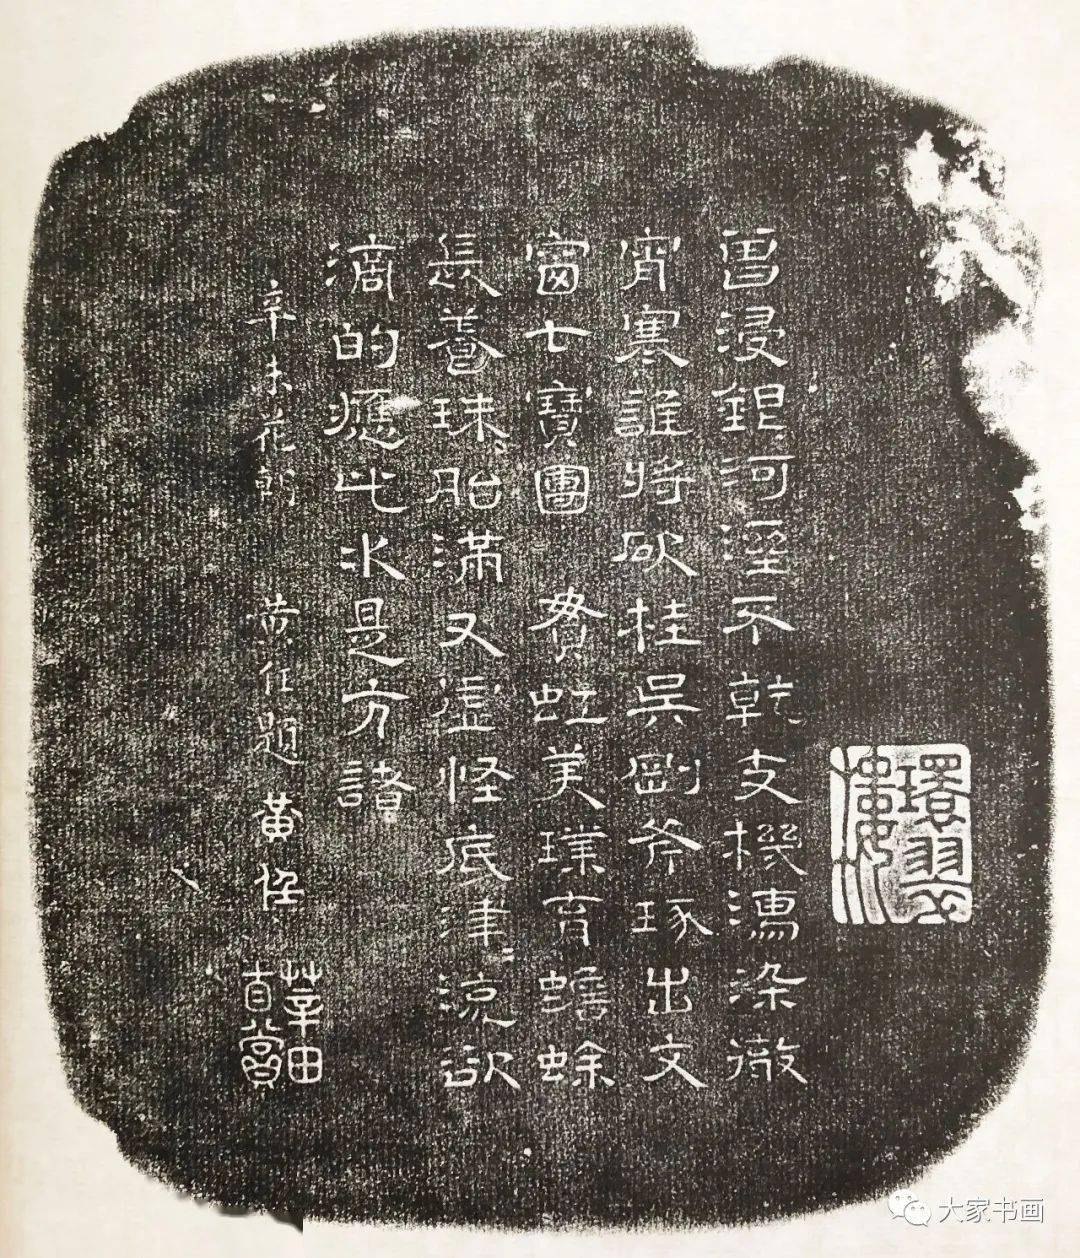 曾浸銀河溼不乾支機濡染徹
宵寒誰將斫桂吳剛斧琢出文
窗七寶團 貫虹美璞育蟾蜍
長養珠胎滿又虛怪底津〻流欲
滴的應此水是方諸
辛未花朝 黃任題 黃任
莘田真賞
大家书画